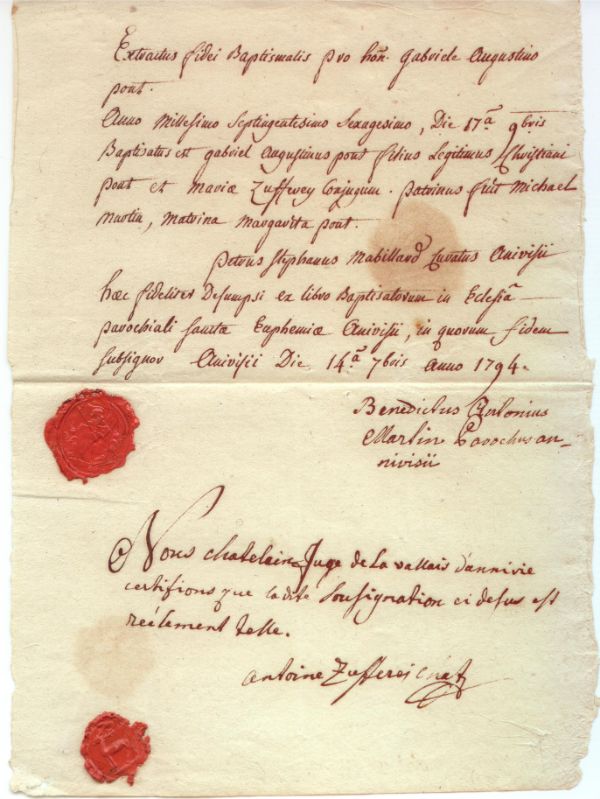 Extractus fidei Baptismalis pro hōn. Gabriele Augustino
pont.
Anno Millesimo Septingentesimo Sexagesimo, Die 17ª 9bris
Baptisatus est gabriel Augustinus pont filius Legitimus Christiani
pont et Mariæ Zufferey Conjugum. patrinus fuit Michael
Martin, Matrina Margarita pont.
petrus Stephanus Mabillard Curatus Anivisii
hæc fideliter Desumpsi ex libro Baptisatorum in Ecclesiâ
parochiali sanctæ Euphemiæ Anivisii, in quorum fidem
subsignor Anivisii Die 14ª 7bris anno 1794.
Benedictus Antonius
Martin Parochus an-
nivisii
Nous chatelain Juge de La vallais d'annivie
certifions que ladite Sousignation ci desus est
reélement telle.
antoine Zufferei